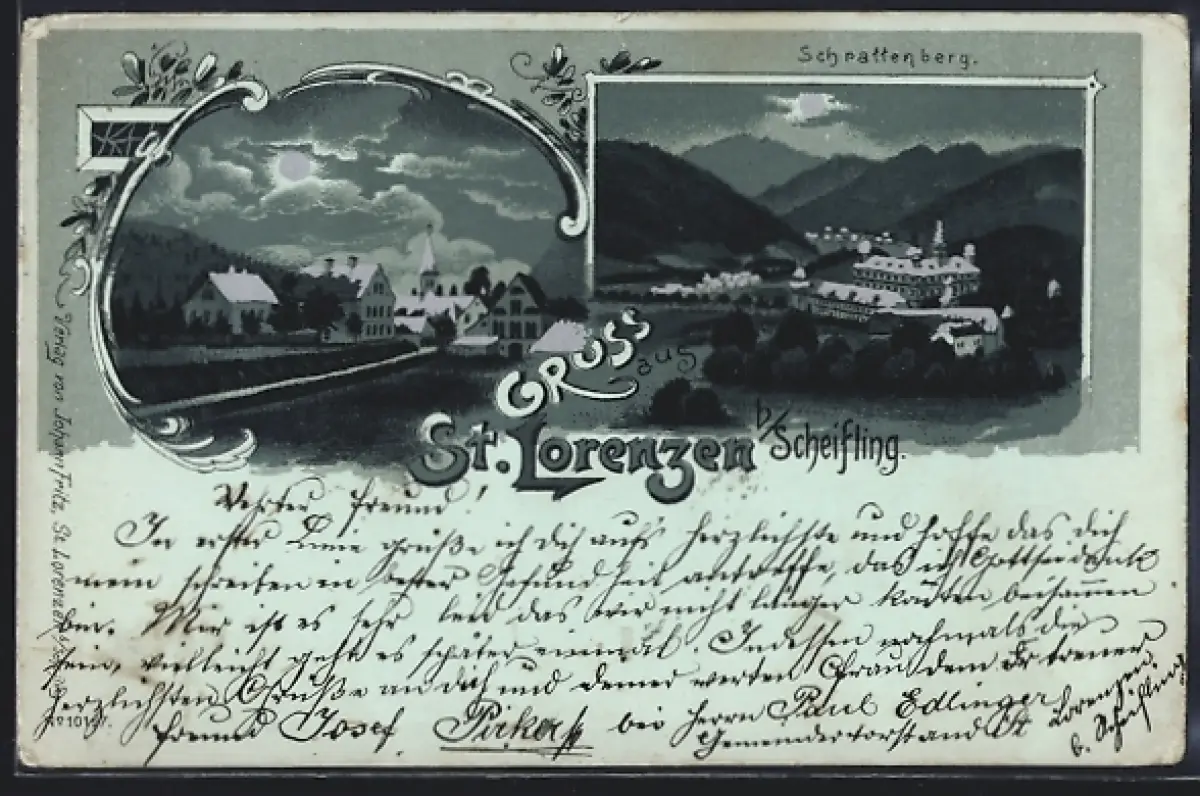 Schrattenberg.
GRUSS aus
St. Lorenzen b/Scheifling.
Verlag von Johann Fritz, St. Lorenzen
Nº 10197.
Werter Freund!
In erster Linie grüße ich dich aufs herzlichste und hoffe das dich
mein schreiben in bester Gesundheit antreffe, das ich Gottseidank
bin. Mir ist es sehr leid das wir nicht länger konten beisammen
sein, vielleicht geht es später einmal. Indessen nochmals die
herzlichsten Grüße an dich und deiner werten Frau dein treuer
Freund Josef Pirker bei Herrn Paul Edlinger
Gemeindevorstand St Lorenzen
b. Scheifling